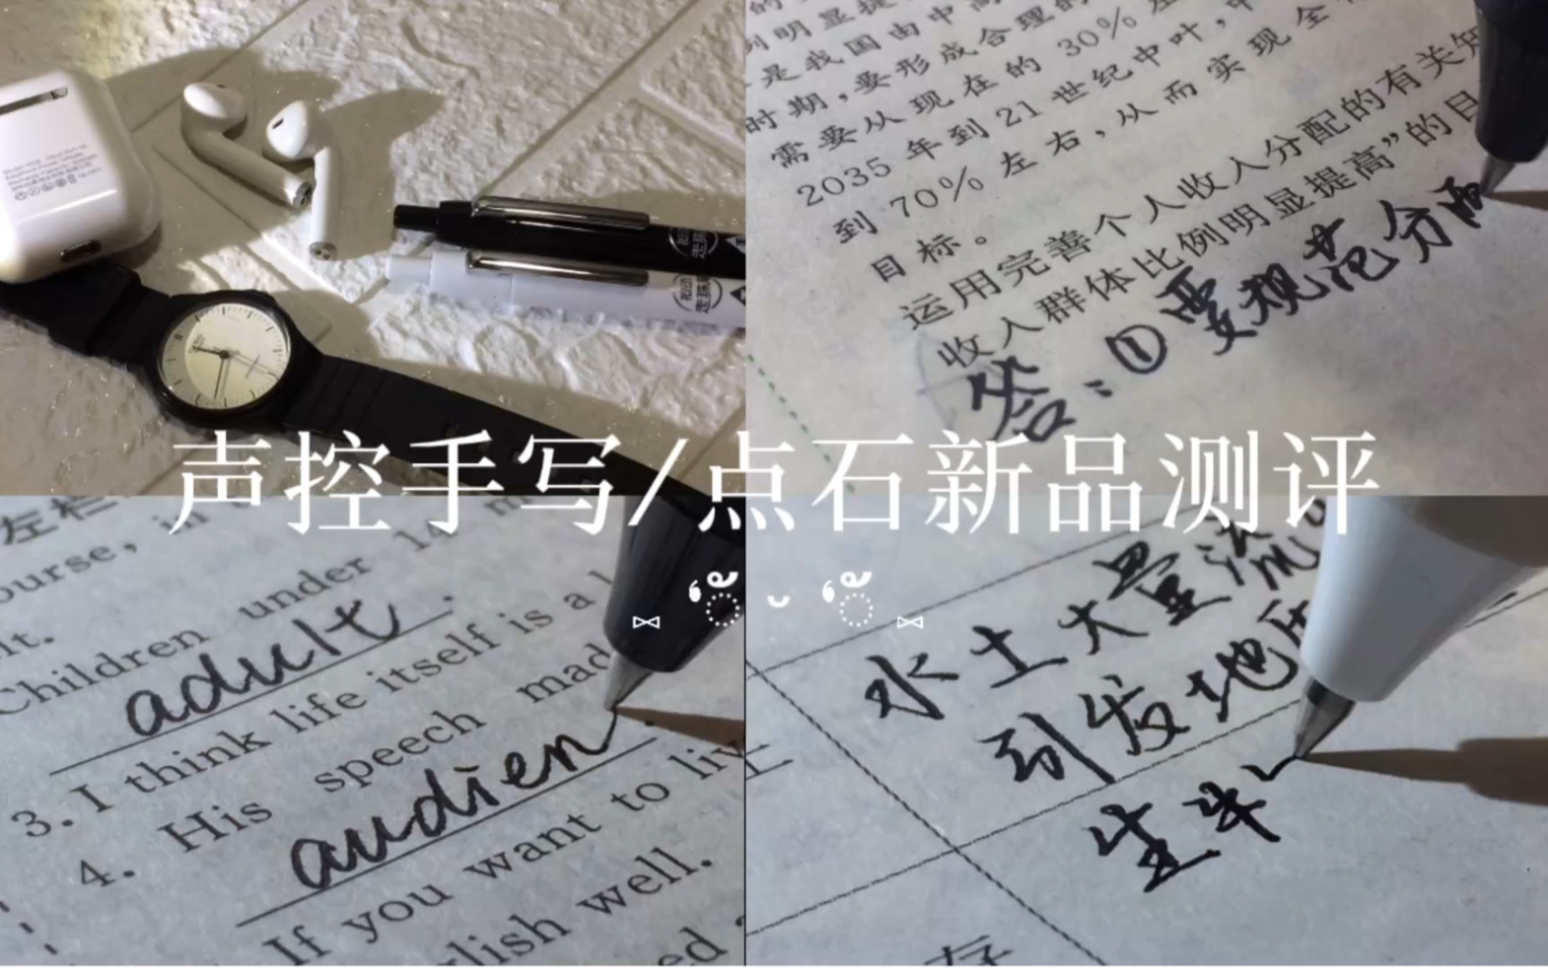 明显提
是我国由中
时期，要形成合理的
需要从现在的 30% 左
2035 年到 21 世纪中叶，中
到 70% 左右，从而实现全
目标。
运用完善个人收入分配的有关知
收入群体比例明显提高”的目
答：①要规范分配
声控手写/点石新品测评
左栏
ourse, in
Children under 14
lt.
adult.
3. I think life itself is a
4. His speech mad
audien
If you want to liv
glish well.
水土大量流
引发地质
生半
存